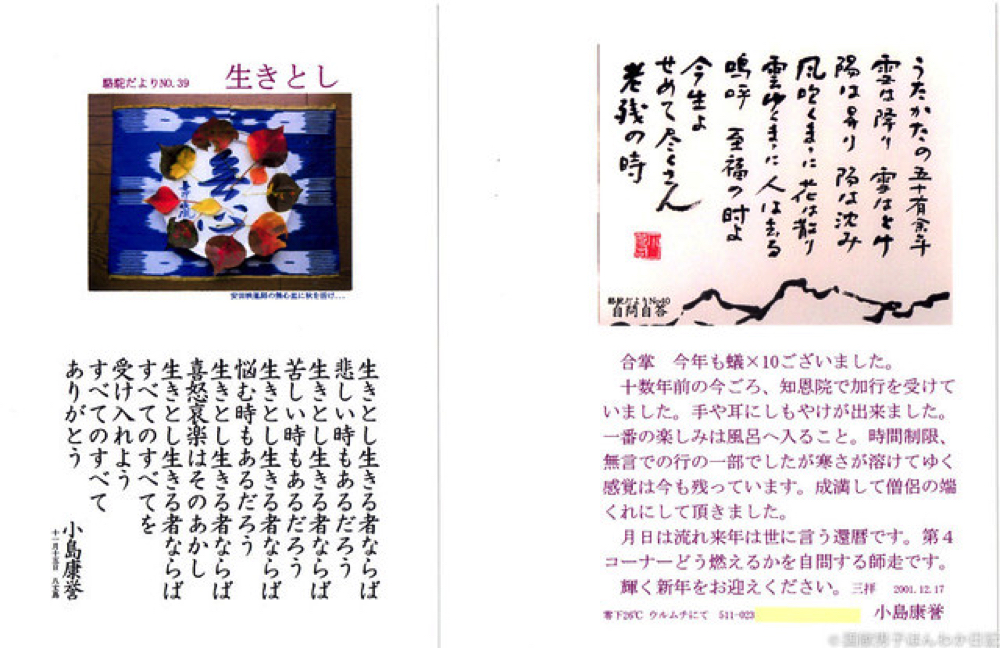 駱駝だよりNO.39
生きとし
無心
安田暎胤師の無心盆に秋を活け...
生きとし生きる者ならば
悲しい時もあるだろう
生きとし生きる者ならば
苦しい時もあるだろう
生きとし生きる者ならば
悩む時もあるだろう
生きとし生きる者ならば
喜怒哀楽はそのあかし
生きとし生きる者ならば
すべてのすべてを
受け入れよう
すべてのすべて
ありがとう
小島康誉
うたかたの五十有余年
雲は降り 雪はとけ
陽は昇り 陽は沈み
風吹くまゝに花は散り
雲ゆくまゝに人は去る
嗚呼 至福の時よ
今生よ
せめて尽くさん
老残の時
駱駝だよりNo40
自問自答
合掌 今年も蟻×10ございました。
十数年前の今ごろ、知恩院で加行を受けて
いました。手や耳にしもやけが出来ました。
一番の楽しみは風呂へ入ること。時間制限、
無言での行の一部でしたが寒さが溶けてゆく
感覚は今も残っています。成満して僧侶の端
くれにして頂きました。
月日は流れ来年は世に言う還暦です。第4
コーナーどう燃えるかを自問する師走です。
輝く新年をお迎えください。三拝 2001.12.17
零下26℃ ウルムチにて 511-023 小島康誉